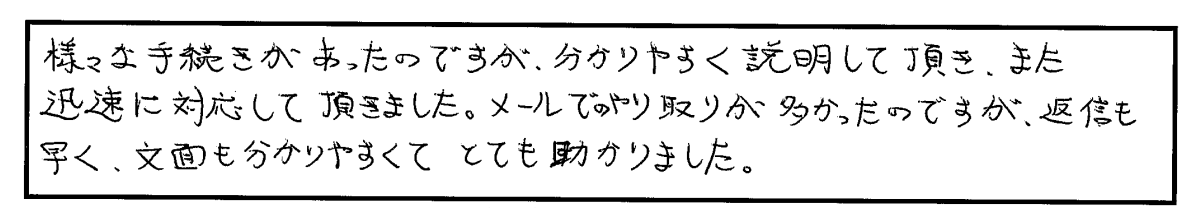 様々な手続きがあったのですが、分かりやすく説明して頂き、また
迅速に対応して頂きました。メールでのやり取りが多かったのですが、返信も
早く、文面も分かりやすくてとても助かりました。